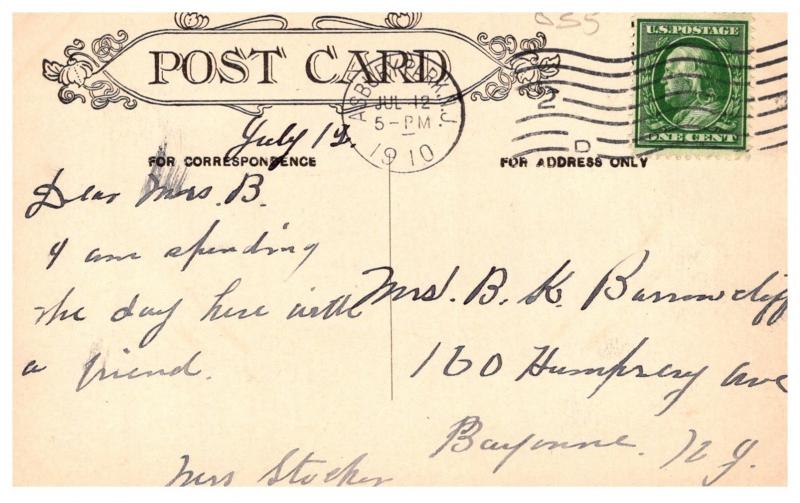 055
U.S. POSTAGE
POST CARD
ASBURY PARK, N.J.
JUL 12
5-PM
1910
D
ONE CENT
July 12.
FOR CORRESPONDENCE
FOR ADDRESS ONLY
Dear Mrs. B.
I am spending
the day here with
a friend.
Mrs. B. K. Barrowcliff
160 Humphrey Ave
Bayonne. N.J.
Stocker